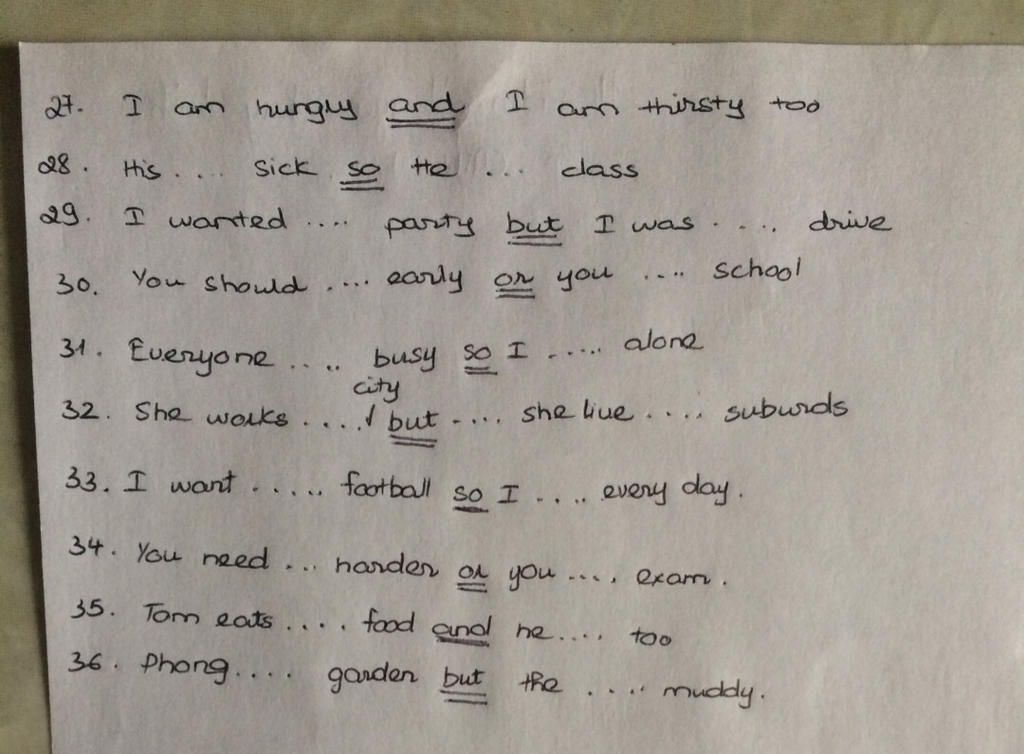 27. I am hungry and I am thirsty too
28. His .... sick so He ... class
29. I wanted .... party but I was .... drive
30. You should .... early or you .... school
31. Everyone .... busy so I ..... alone
32. She works .... city but .... she live .... suburds
33. I want ..... football so I .... every day.
34. You need ... harder or you .... exam.
35. Tom eats .... food and he .... too
36. Phong .... garden but the .... muddy.